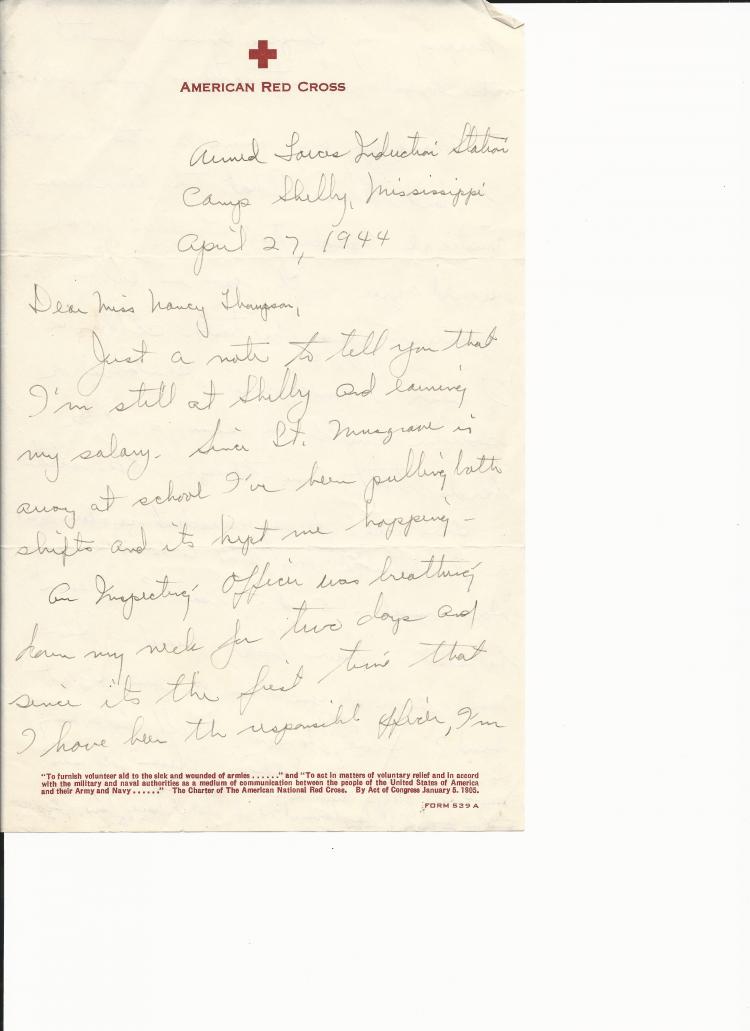 AMERICAN RED CROSS
Armed Forces Induction Station
Camp Shelby, Mississippi
April 27, 1944
Dear Miss Nancy Thompson,
Just a note to tell you that
I'm still at Shelby and earning
my salary. Since Lt. Musgrave is
away at school I've been pulling both
shifts and its kept me hopping -
An Inspecting Officer was breathing
down my neck for two days and
since its the first time that
I have been the responsible officer, I'm
"To furnish volunteer aid to the sick and wounded of armies ......" and "To act in matters of voluntary relief and in accord
with the military and naval authorities as a medium of communication between the people of the United States of America
and their Army and Navy ......" The Charter of The American National Red Cross. By Act of Congress January 5, 1905.
FORM 539 A